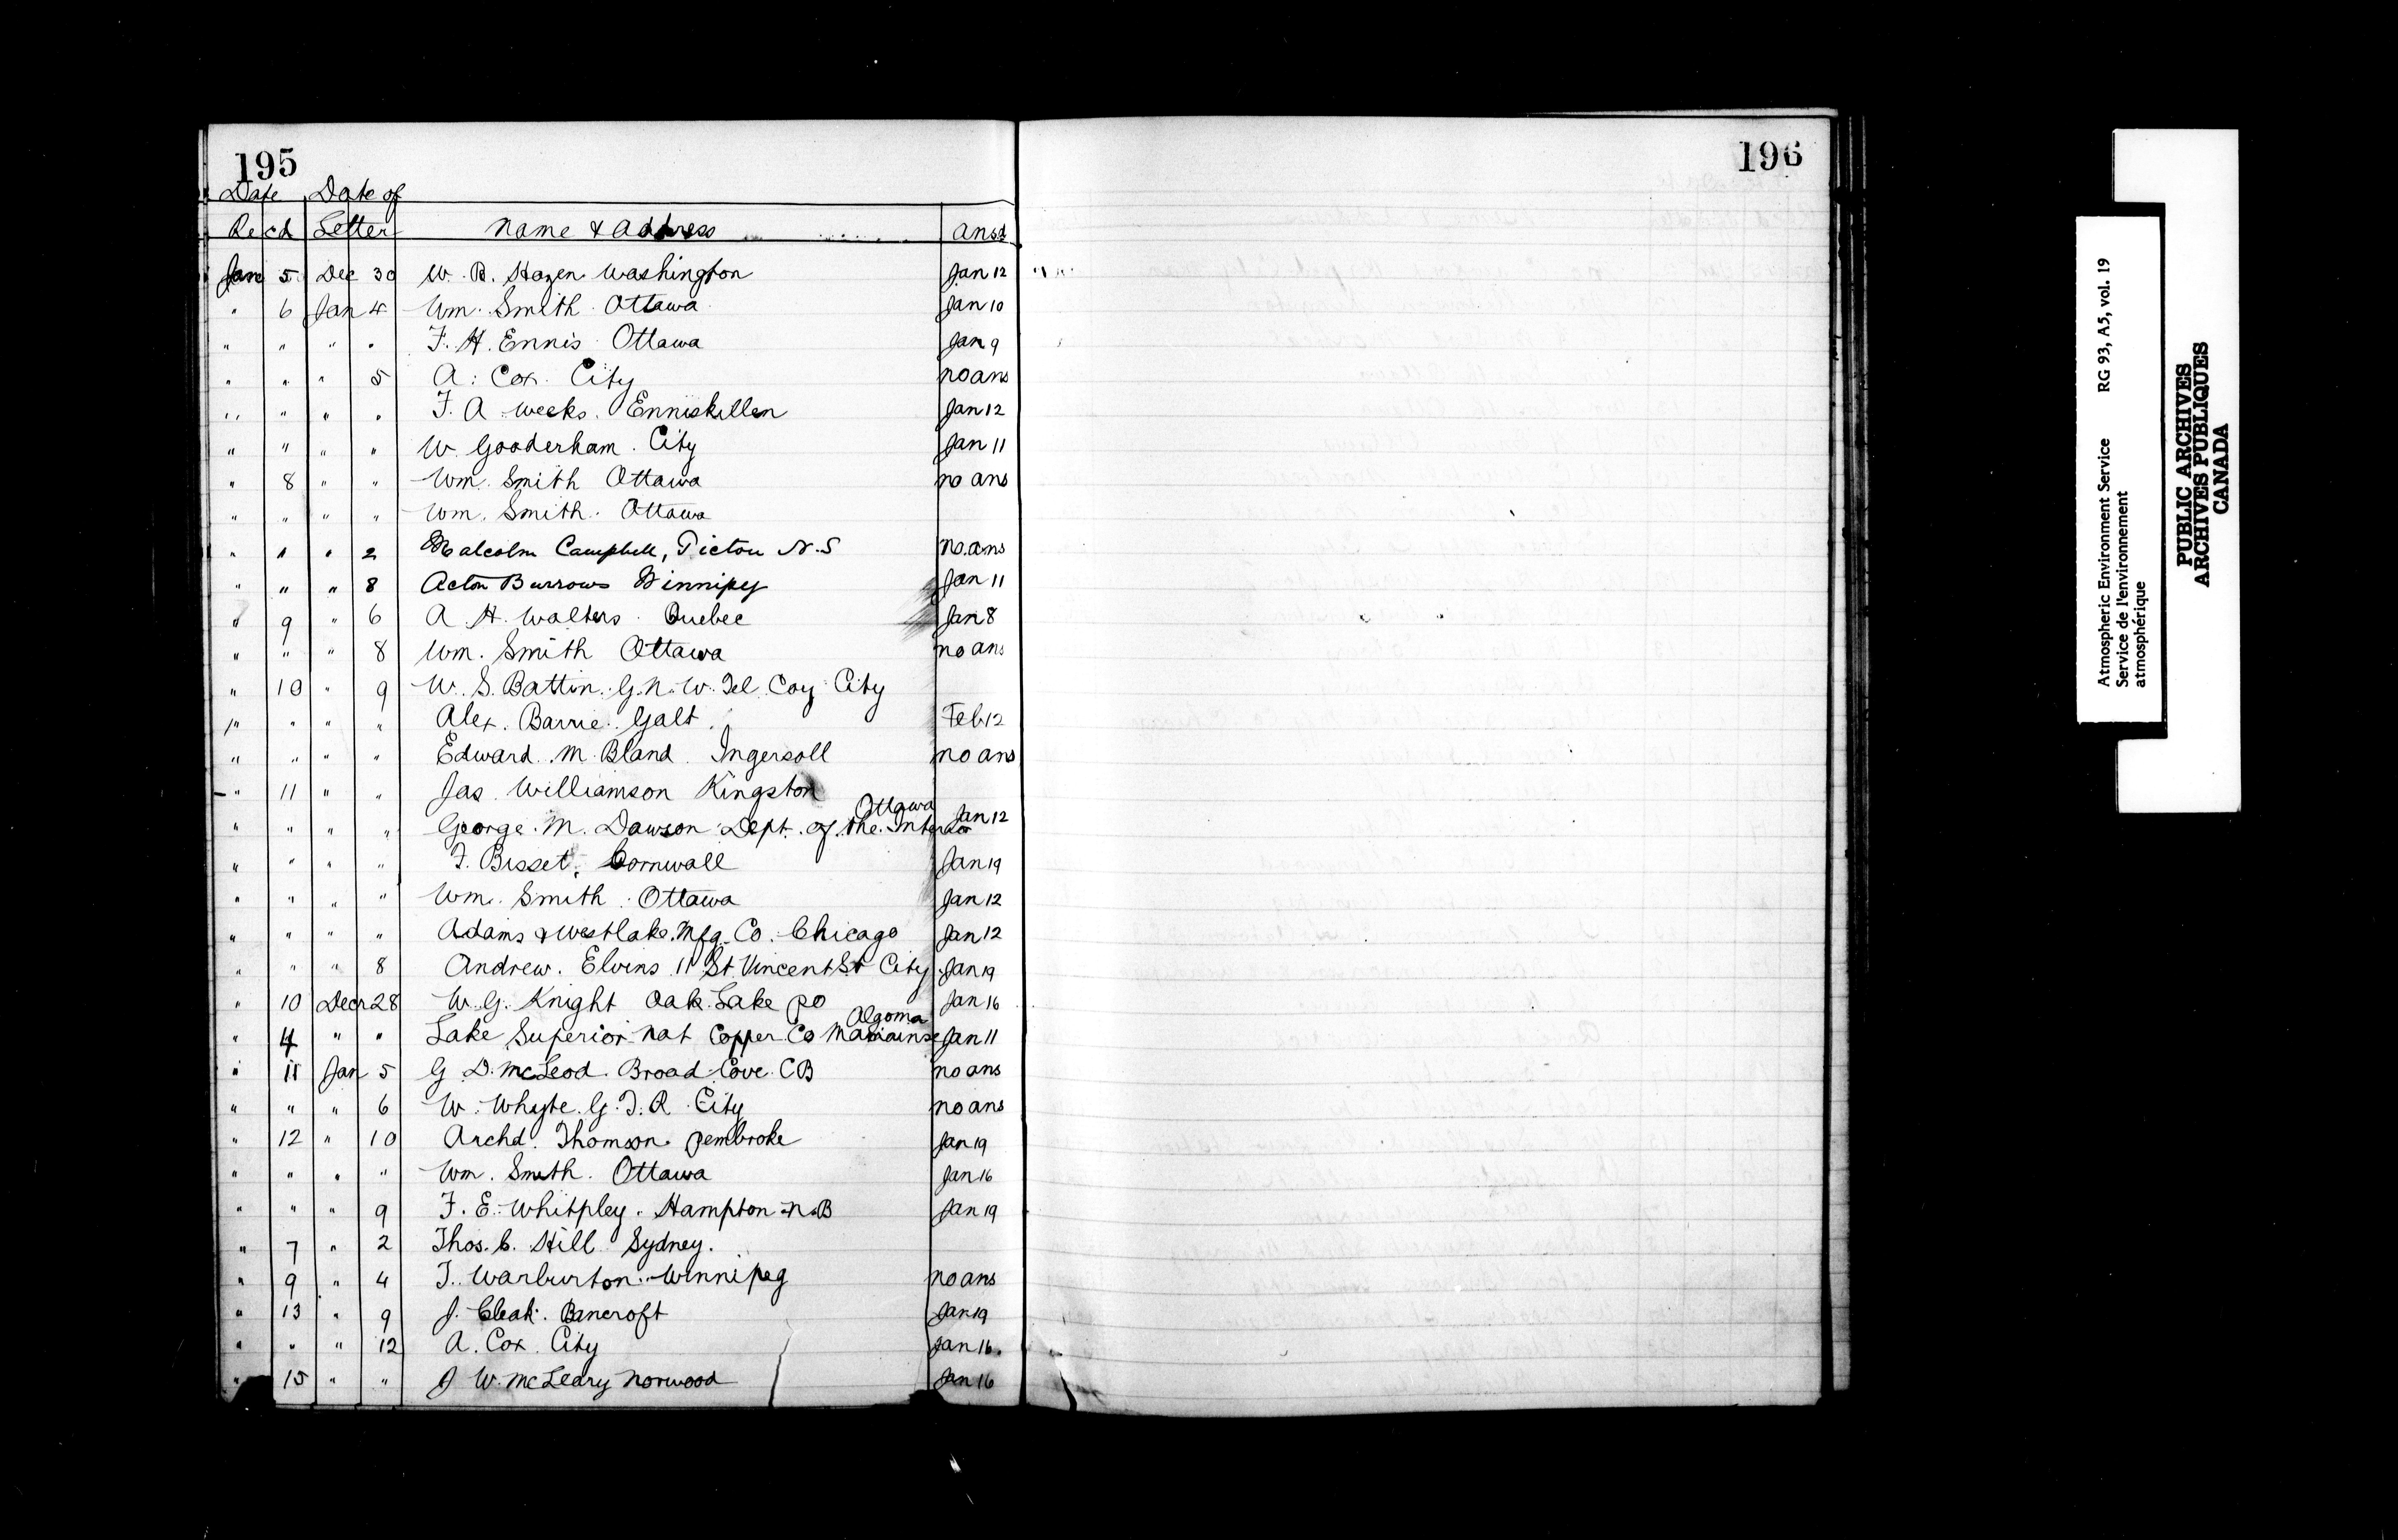 195
196
Date Date of
Recd Letter Name & Address Ansd
Jan 5 Dec 30 W. B. Hazen Washington Jan 12
" 6 Jan 4 Wm. Smith Ottawa Jan 10
" " " " F. H. Ennis Ottawa Jan 9
" " " 5 A. Cox. City no ans
" " " " F. A. Weeks. Enniskillen Jan 12
" " " " W. Gooderham. City Jan 11
" 8 " " Wm. Smith Ottawa no ans
" " " " Wm. Smith. Ottawa
" " " 2 Malcolm Campbell, Pictou N.S no. ans
" " " 8 Acton Burrows Winnipeg Jan 11
" 9 " 6 A. H. Walters. Quebec Jan 8
" " " 8 Wm. Smith Ottawa no ans
" 10 " 9 W. S. Battin. G. N. W. Tel. Coy City
" " " " Alex. Barrie. Galt. Feb 12
" " " " Edward. M. Bland. Ingersoll no ans
" 11 " " Jas. Williamson Kingston
" " " " George. M. Dawson Dept. of the. Interior Ottawa Jan 12
" " " " F. Bisset. Cornwall Jan 19
" " " " Wm. Smith. Ottawa Jan 12
" " " " Adams & Westlake. Mfg. Co. Chicago Jan 12
" " " 8 Andrew. Elvins 11 St Vincent St City. Jan 19
" 10 Decr 28 W. G. Knight Oak Lake PO Jan 16
" 4 " " Lake Superior Nat Copper Co Mamainse Algoma Jan 11
" 11 Jan 5 G. D. McLeod. Broad Cove. CB no ans
" " " 6 W. Whyte. G. T. R. City no ans
" 12 " 10 Archd. Thomson. Pembroke Jan 19
" " " " Wm. Smith. Ottawa Jan 16
" " " 9 F. E. Whitpley. Hampton N.B Jan 19
" 7 " 2 Thos. C. Hill Sydney.
" 9 " 4 T. Warburton. Winnipeg no ans
" 13 " 9 J. Cleak. Bancroft Jan 19
" " " 12 A. Cox. City Jan 16.
" 15 " " J W. McLeary Norwood Jan 16
Atmospheric Environment Service RG 93, A5, vol. 19
Service de l'environnement
atmosphérique
PUBLIC ARCHIVES
ARCHIVES PUBLIQUES
CANADA